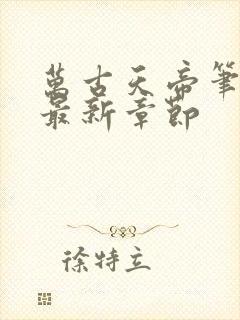 萬古天帝筆
最新章節
徐特立